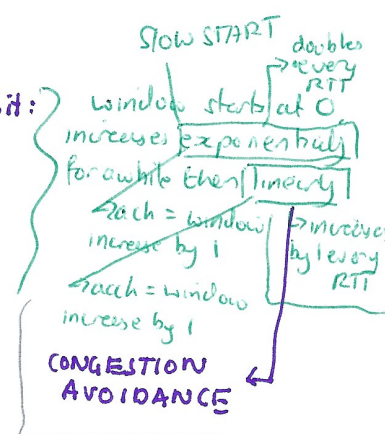 SLOW START
doubles
every
RTT
it:
window starts at 0
increases exponentially
for a while then linearly
each = window
increase by 1
increases
by 1 every
RTT
each = window
increase by 1
CONGESTION
AVOIDANCE